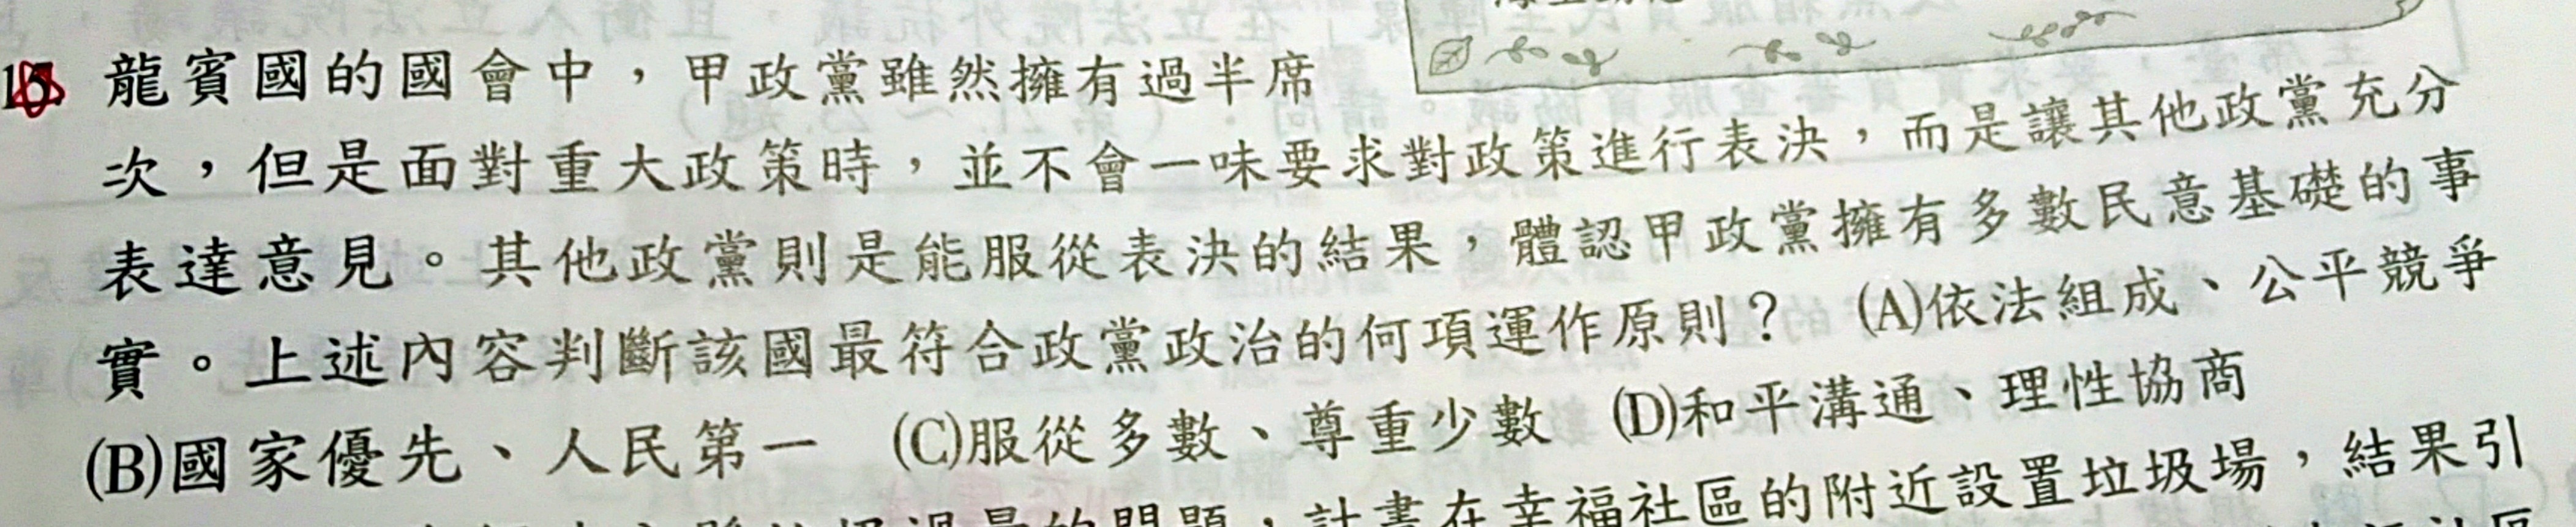 15. 龍賓國的國會中，甲政黨雖然擁有過半席
次，但是面對重大政策時，並不會一味要求對政策進行表決，而是讓其他政黨充分
表達意見。其他政黨則是能服從表決的結果，體認甲政黨擁有多數民意基礎的事
實。上述內容判斷該國最符合政黨政治的何項運作原則？ (A)依法組成、公平競爭
(B)國家優先、人民第一 (C)服從多數、尊重少數 (D)和平溝通、理性協商
的問題，計畫在幸福社區的附近設置垃圾場，結果引